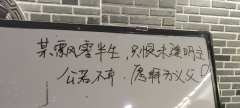 某飘零半生，只恨未逢明主
公若不弃，愿拜为义父